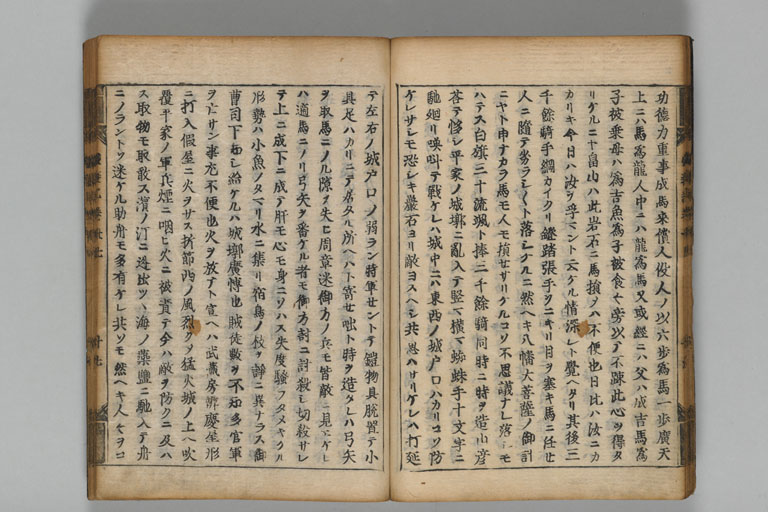 功徳力重事成馬来償人役人ノ以六歩為馬一歩廣天
上ニハ馬為龍人中ニハ龍為馬又或經ニハ父ハ成吉馬為
子被乗母ハ為吉魚為子被食セ旁以テ不疎此心ヲ得タ
リケルニヤ畠山ハ此岩石ニ馬損ヲハ不便也日比ハ汝ニカ
カリキ今日ハ汝ヲ孚マント云ケル情深シト覺ヘタリ其後三
千餘騎手綱カイクリ鐙踏張手ヲニキリ目ヲ塞キ馬ニ任セ
人ニ随テ劣ラシ〳〵ト落シケルニ然ヘキ八幡大菩薩ノ御計
ニヤト申ナカラ馬モ人モ損セサリケルコソ不思議ナレ落シモ
ハテス白旗三十流颯ト捧三千餘騎同時ニ時ヲ造山彦
荅テ夥シ平家ノ城郭ニ亂入テ竪ニ横ニ蜘蛛手十文字ニ
馳廻リ喚叫テ戰ケレハ城中ニハ東西ノ城戸口ハカリコソ防
ケレサシモ恐シキ巖石ヨリ敵ヨスヘシ共思ハサリケレハ打延
テ左右ノ城戸口ノ弱ラン將軍セントテ鎧物具脱習テ小
具足ハカリニテ居タル所ヘハト寄セ咄ト時ヲ造タレハ弓矢
ヲ取馬ニノル隙ヲ失ヒ周章迷御方ノ兵モ皆敵ニ見エケレ
ハ適馬ニノリ弓矢ヲ番ケル者モ御方討ニ討殺シ切殺サレ
テ上ニ成下ニ成テ肝モ心モ身ニソハス失度騒フタメキケル
形勢ハ小魚ノタマリ水ニ集リ宿鳥ノ枝ヲ諍ニ異ナラス御
曹司下知シ給ケルハ城郭廣博也賊徒數ヲ不知多官軍
ヲ亡サン事尤不便也火ヲ放テト宣ヘハ武藏房辨慶屋形
ニ打入假屋ニ火ヲサス折節西ノ風烈クシ猛火城ノ上ヘ吹
覆平家ノ軍兵煙ニ咽ヒ火ニ被責テ今ハ敵ヲ防クニ及ハ
ス取物モ取散ス濱ノ汀ニ迯出ツヽ海ノ藻鹽ニ馳入テ舟
ニノラント〳〵迷ケル助舟モ多有ケレ共ソモ然ヘキ人々ヲコ